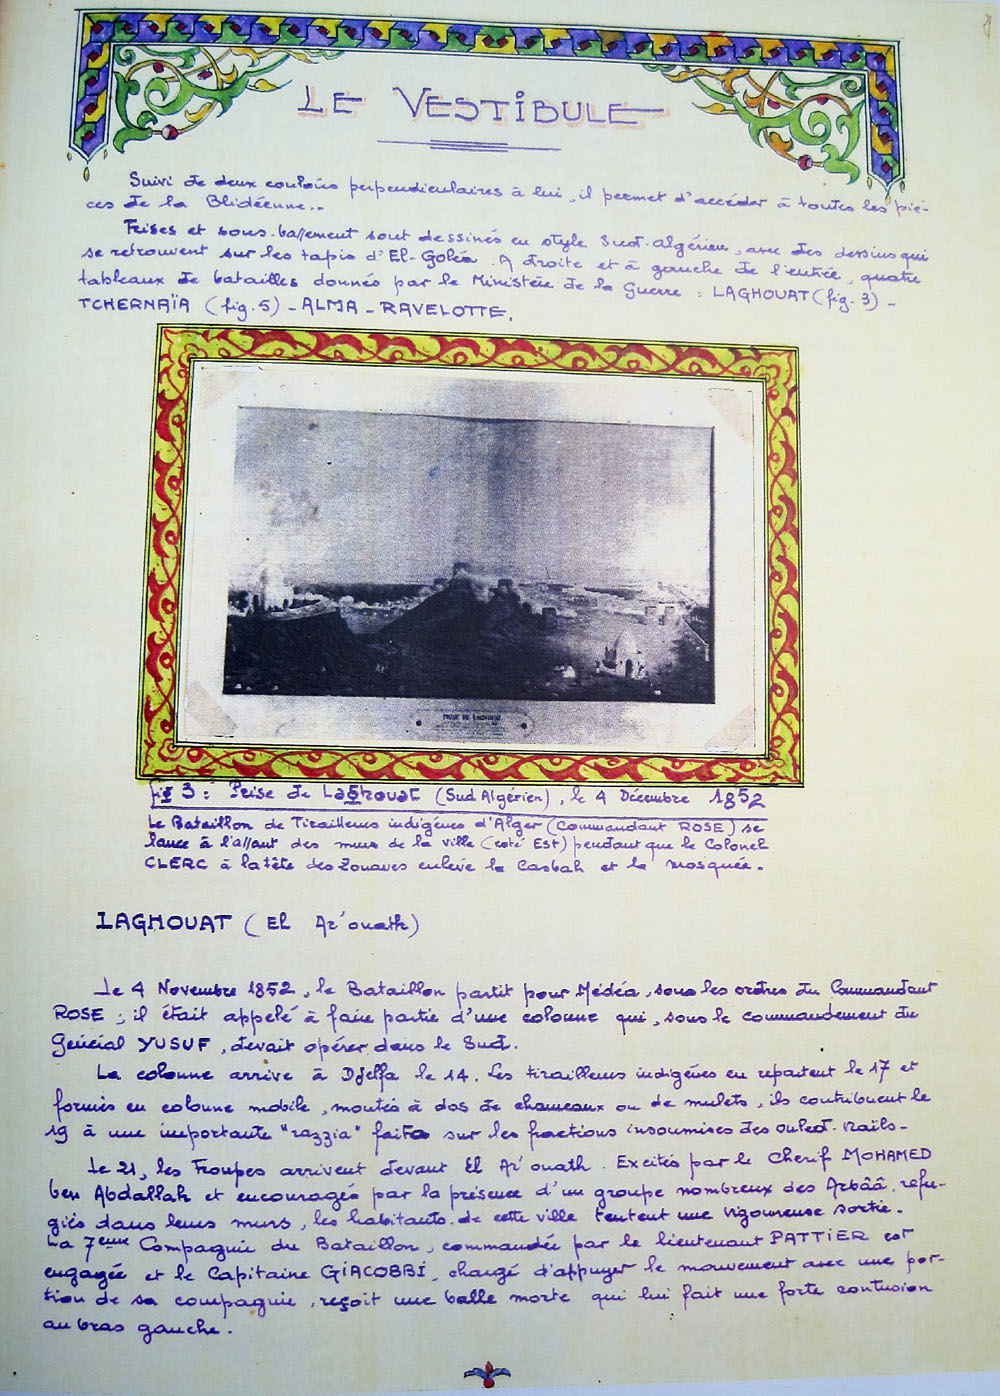 LE VESTIBULE
Suivi de deux couloirs perpendiculaires à lui, il permet d'accéder à toutes les piè-
ces de la Blidéenne..
Frises et sous-bassement sont dessinés en style Sud-algérien, avec des dessins qui
se retrouvent sur les tapis d'El-Goléa. A droite et à gauche de l'entrée, quatre
tableaux de batailles donnés par le Ministère de la Guerre : LAGHOUAT (fig. 3) -
TCHERNAÏA (fig. 5) - ALMA - RAVELOTTE.
PRISE DE LAGHOUAT
fig 3 : Prise de Laghouat (Sud Algérien), le 4 Décembre 1852
Le Bataillon de Tirailleurs indigènes d'Alger (Commandant ROSE) se
lance à l'assaut des murs de la ville (coté Est) pendant que le Colonel
CLERC à la tête des Zouaves enlève la Casbah et la mosquée.
LAGHOUAT (El Ar'ouath)
Le 4 Novembre 1852, le Bataillon partit pour Médéa, sous les ordres du Commandant
ROSE ; il était appelé à faire partie d'une colonne qui, sous le commandement du
Général YUSUF, devait opérer dans le Sud.
La colonne arrive à Djelfa le 14. Les tirailleurs indigènes en repartent le 17 et
formés en colonne mobile, montés à dos de chameaux ou de mulets, ils contribuent le
19 à une importante "razzia" faite sur les fractions insoumises des ouled-naïls-
Le 21, les Troupes arrivent devant El Ar'ouath. Excités par le Cherif MOHAMED
ben Abdallah et encouragés par la présence d'un groupe nombreux des Arbââ, réfu-
giés dans leurs murs, les habitants de cette ville tentent une vigoureuse sortie.
La 7ème Compagnie du Bataillon, commandée par le lieutenant PATTIER est
engagée et le Capitaine GIACOBBI, chargé d'appuyer le mouvement avec une por-
tion de sa compagnie, reçoit une balle morte qui lui fait une forte contusion
au bras gauche.